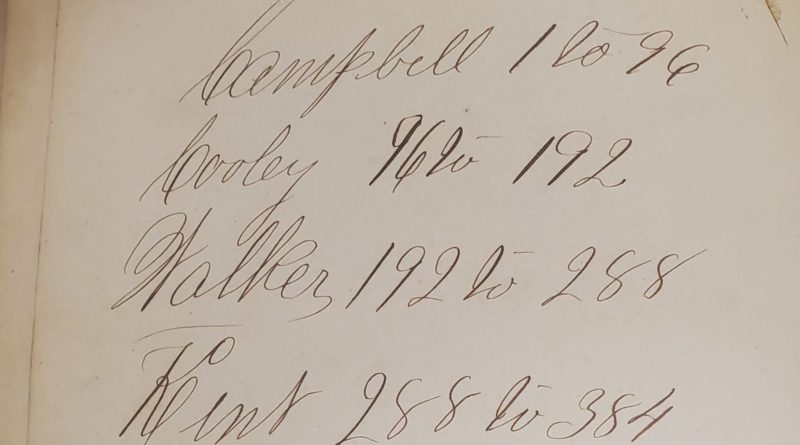 Campbell 1 to 96
Cooley 96 to 192
Walker 192 to 288
Kent 288 to 384